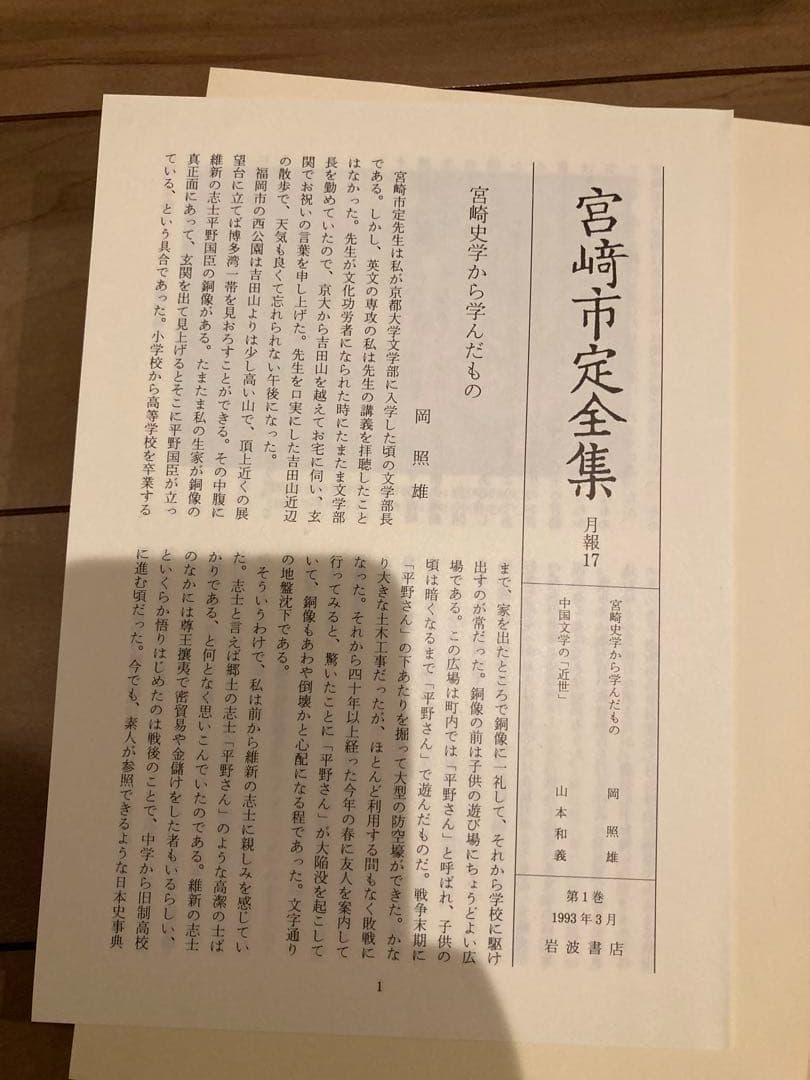 宮﨑市定全集
月報17
宮崎史学から学んだもの　岡　照　雄
中国文学の「近世」　山　本　和　義
第1巻
1993年3月
岩波書店
宮崎史学から学んだもの
岡　照　雄
宮崎市定先生は私が京都大学文学部に入学した頃の文学部長
である。しかし、英文の専攻の私は先生の講義を拝聴したこと
はなかった。先生が文化功労者になられた時にたまたま文学部
長を勤めていたので、京大から吉田山を越えてお宅に伺い、玄
関でお祝いの言葉を申し上げた。先生を口実にした吉田山近辺
の散歩で、天気も良くて忘れられない午後になった。
福岡市の西公園は吉田山よりは少し高い山で、頂上近くの展
望台に立てば博多湾一帯を見おろすことができる。その中腹に
維新の志士平野国臣の銅像がある。たまたま私の生家が銅像の
真正面にあって、玄関を出て見上げるとそこに平野国臣が立っ
ている、という具合であった。小学校から高等学校を卒業する
まで、家を出たところで銅像に一礼して、それから学校に駆け
出すのが常だった。銅像の前は子供の遊び場にちょうどよい広
場である。この広場は町内では「平野さん」と呼ばれ、子供の
頃は暗くなるまで「平野さん」で遊んだものだ。戦争末期に
「平野さん」の下あたりを掘って大型の防空壕ができた。かな
り大きな土木工事だったが、ほとんど利用する間もなく敗戦に
なった。それから四十年以上経った今年の春に友人を案内して
行ってみると、驚いたことに「平野さん」が大陥没を起こして
いて、銅像もあわや倒壊かと心配になる程であった。文字通り
の地盤沈下である。
そういうわけで、私は前から維新の志士に親しみを感じてい
た。志士と言えば郷土の志士「平野さん」のような高潔の士ば
かりである、と何となく思いこんでいたのである。維新の志士
のなかには尊王攘夷で密貿易や金儲けをした者もいるらしい、
といくらか悟りはじめたのは戦後のことで、中学から旧制高校
に進む頃だった。今でも、素人が参照できるような日本史事典
1